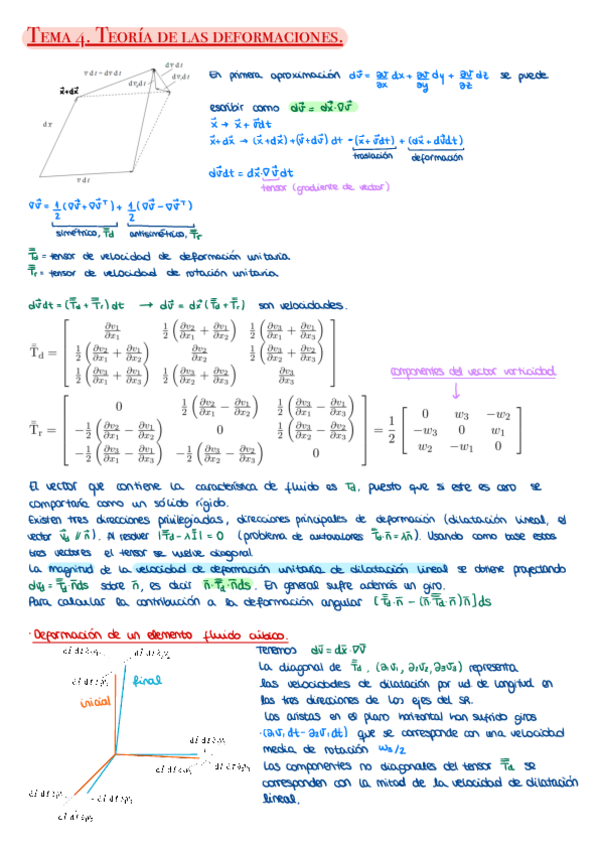 TEMA 4. TEORÍA DE LAS DEFORMACIONES.
En primera aproximación dv⃗ = ∂v⃗/∂x dx + ∂v⃗/∂y dy + ∂v⃗/∂z dz se puede
escribir como dv⃗ = dx⃗·∇v⃗
x⃗+dx⃗
x⃗ → x⃗ + v⃗dt
x⃗+dx⃗ → (x⃗+dx⃗)+(v⃗+dv⃗) dt = (x⃗+v⃗dt) + (dx⃗ + dv⃗dt)
traslación deformación
dv⃗dt = dx⃗·∇v⃗dt
tensor (gradiente de vector)
∇v⃗ = 1/2 (∇v⃗+∇v⃗ᵀ) + 1/2 (∇v⃗-∇v⃗ᵀ)
simétrico, T̿d antisimétrico, T̿r
T̿d = tensor de velocidad de deformación unitaria
T̿r = tensor de velocidad de rotación unitaria
dv⃗dt = (T̿d + T̿r) dt → dv⃗ = dx⃗ (T̿d + T̿r) son velocidades.
T̿d = [ ∂v₁/∂x₁ 1/2(∂v₂/∂x₁ + ∂v₁/∂x₂) 1/2(∂v₃/∂x₁ + ∂v₁/∂x₃)
1/2(∂v₂/∂x₁ + ∂v₁/∂x₂) ∂v₂/∂x₂ 1/2(∂v₃/∂x₂ + ∂v₂/∂x₃)
1/2(∂v₃/∂x₁ + ∂v₁/∂x₃) 1/2(∂v₃/∂x₂ + ∂v₂/∂x₃) ∂v₃/∂x₃ ]
componentes del vector vorticidad
T̿r = [ 0 1/2(∂v₂/∂x₁ − ∂v₁/∂x₂) 1/2(∂v₃/∂x₁ − ∂v₁/∂x₃)
−1/2(∂v₂/∂x₁ − ∂v₁/∂x₂) 0 1/2(∂v₃/∂x₂ − ∂v₂/∂x₃)
−1/2(∂v₃/∂x₁ − ∂v₁/∂x₃) −1/2(∂v₃/∂x₂ − ∂v₂/∂x₃) 0 ]
= 1/2 [ 0 w₃ −w₂
−w₃ 0 w₁
w₂ −w₁ 0 ]
El vector que contiene la característica de fluido es Td, puesto que si este es cero se
comportaría como un sólido rígido.
Existen tres direcciones privilegiadas, direcciones principales de deformación (dilatación lineal, el
vector v⃗d ∥ n⃗). Al resolver |T̿d - λI̿| = 0 (problema de autovalores T̿d·n⃗ = λn⃗). Usando como base estos
tres vectores el tensor se vuelve diagonal.
La magnitud de la velocidad de deformación unitaria de dilatación lineal se obtiene proyectando
dvd = T̿d·n⃗ds sobre n⃗, es decir n⃗·T̿d·n⃗ds. En general sufre además un giro.
Para calcular la contribución a la deformación angular [T̿d·n⃗ - (n⃗·T̿d·n⃗)n⃗]ds
· Deformación de un elemento fluido cúbico.
final
inicial
Tenemos dv⃗ = dx⃗·∇v⃗
La diagonal de T̿d, (∂₁v₁, ∂₂v₂, ∂₃v₃) representa
las velocidades de dilatación por ud de longitud en
las tres direcciones de los ejes del SR.
Las aristas en el plano horizontal han sufrido giros
·(∂₁v₂dt - ∂₂v₁dt) que se corresponde con una velocidad
media de rotación w₃/2
Las componentes no diagonales del tensor T̿d se
corresponden con la mitad de la velocidad de dilatación
lineal.